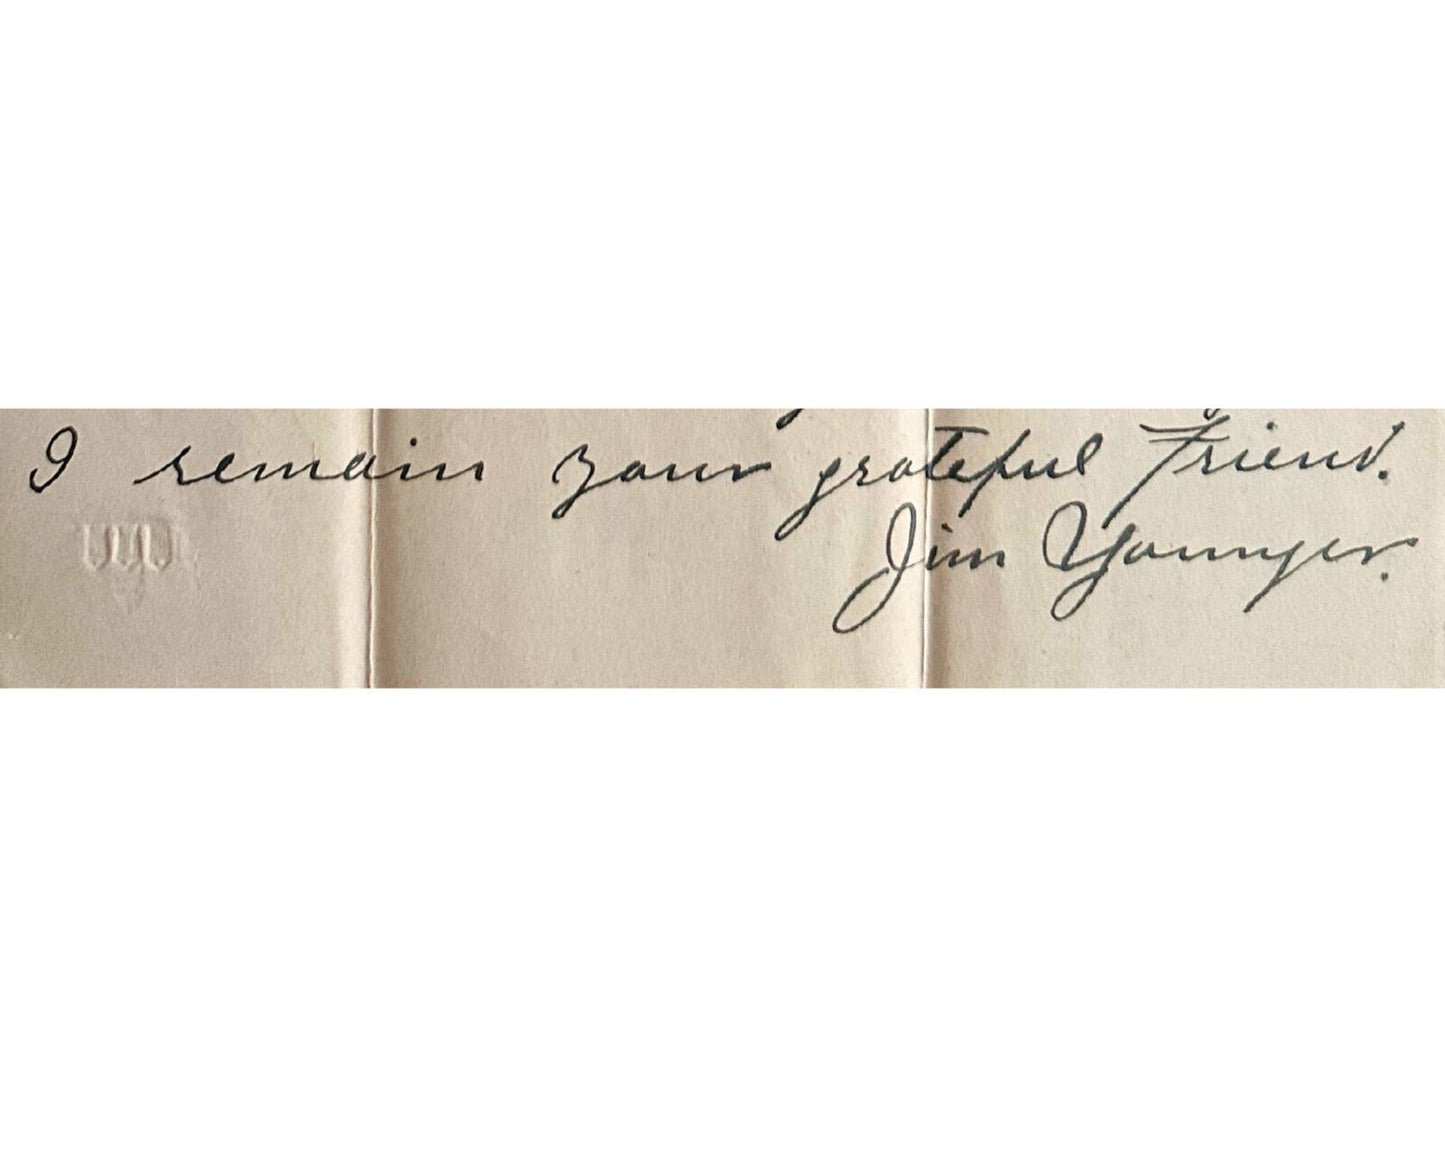 I remain your grateful Friend.
Jim Younger.